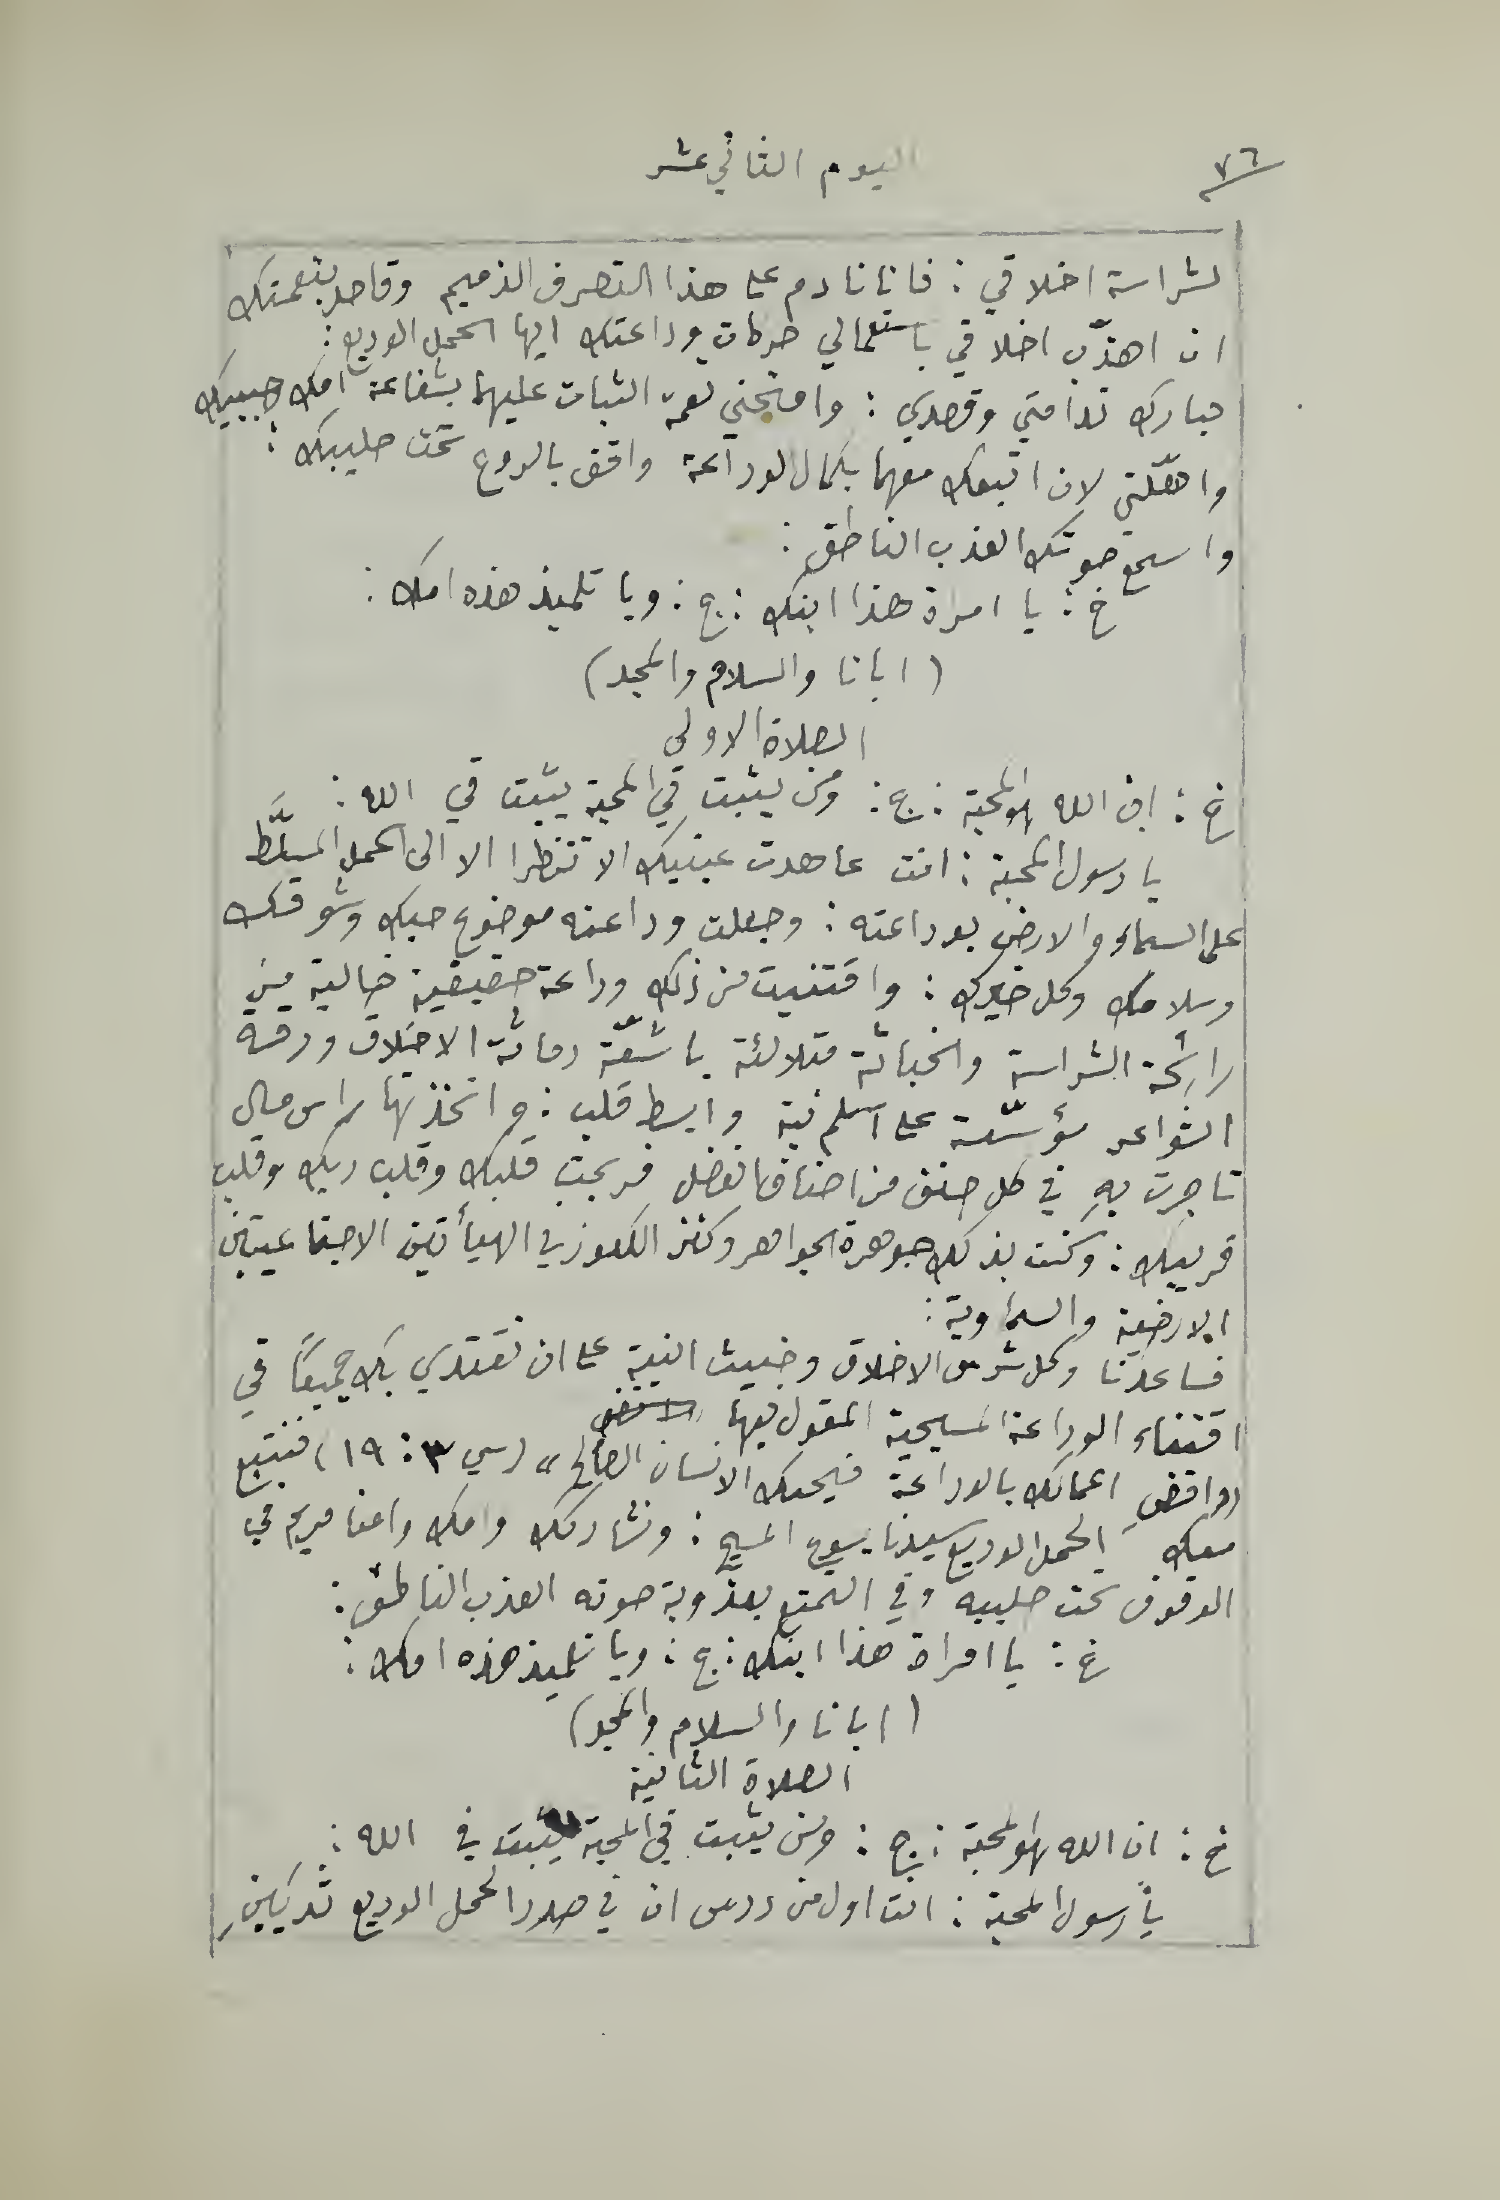 ٧٦
اليوم الثاني عشر
لشراسة اخلاقي : فانا نادم على هذا التصرف الذميم وقاصد بنعمتك
ان اهذّب اخلاقي باستعمالي حركات وداعتك ايها الحمل الوديع :
فبارك ندامتي وقصدي : وامنحني نعمة الثبات عليهما بشفاعة امك وحبيبك
واهّلني لان اتبعك معهما بكمال الوداعة واقف بالروح تحت صليبك :
واسمع صوتك العذب الناطق :
خ : يا امراة هذا ابنك : ج : ويا تلميذ هذه امك :
( ابانا والسلام والمجد )
الصلاة الاولى
خ : ان الله لهو المحبة : ج : ومن يثبت في المحبة يثبت في الله :
يا رسول المحبة : انت عاهدت عينيك الا تنظرا الا الى الحمل المسلَّط
على السماء والارض بوداعته : وجعلت وداعته موضوع حبك وشوقك
وسلامك وكل خيرك : واقتنيت من ذلك وداعة حقيقية خالية من
رائحة الشراسة والخباثة متلالئة باشعّة دماثة الاخلاق ورقة
الشواعر مؤسّسة على اسلم نية وابسط قلب : واتخذتها راس مال
تاجرت بهِ في كل صنف من اصناف الفضل فربحت قلبك وقلب ربك وقلب
قريبك : وكنت بذلك جوهرة الجواهر وكنز الكنوز في الهيأتين الاجتماعيتين
الارضية والسماوية :
فساعدنا وكل شرس الاخلاق وخبيث النية على ان نقتدي بك جميعًا في
اقتناء الوداعة المسيحية المقول فيها
"واقضِ اعمالك بالوداعة فيحبك الانسان الصالح" (سي ٣ : ١٩) فنتبع
معك الحمل الوديع سيدنا يسوع المسيح : ونشاركك وامك وامنا مريم في
الوقوف تحت صليبه وفي التمتع بعذوبة صوته العذب الناطق :
خ : يا امراة هذا ابنك : ج : ويا تلميذ هذه امك :
( ابانا والسلام والمجد )
الصلاة الثانية
خ : ان الله لهو المحبة : ج : ومن يثبت في المحبة يثبت في الله :
يا رسول المحبة : انت اول من درس ان في صدر الحمل الوديع ثديَين